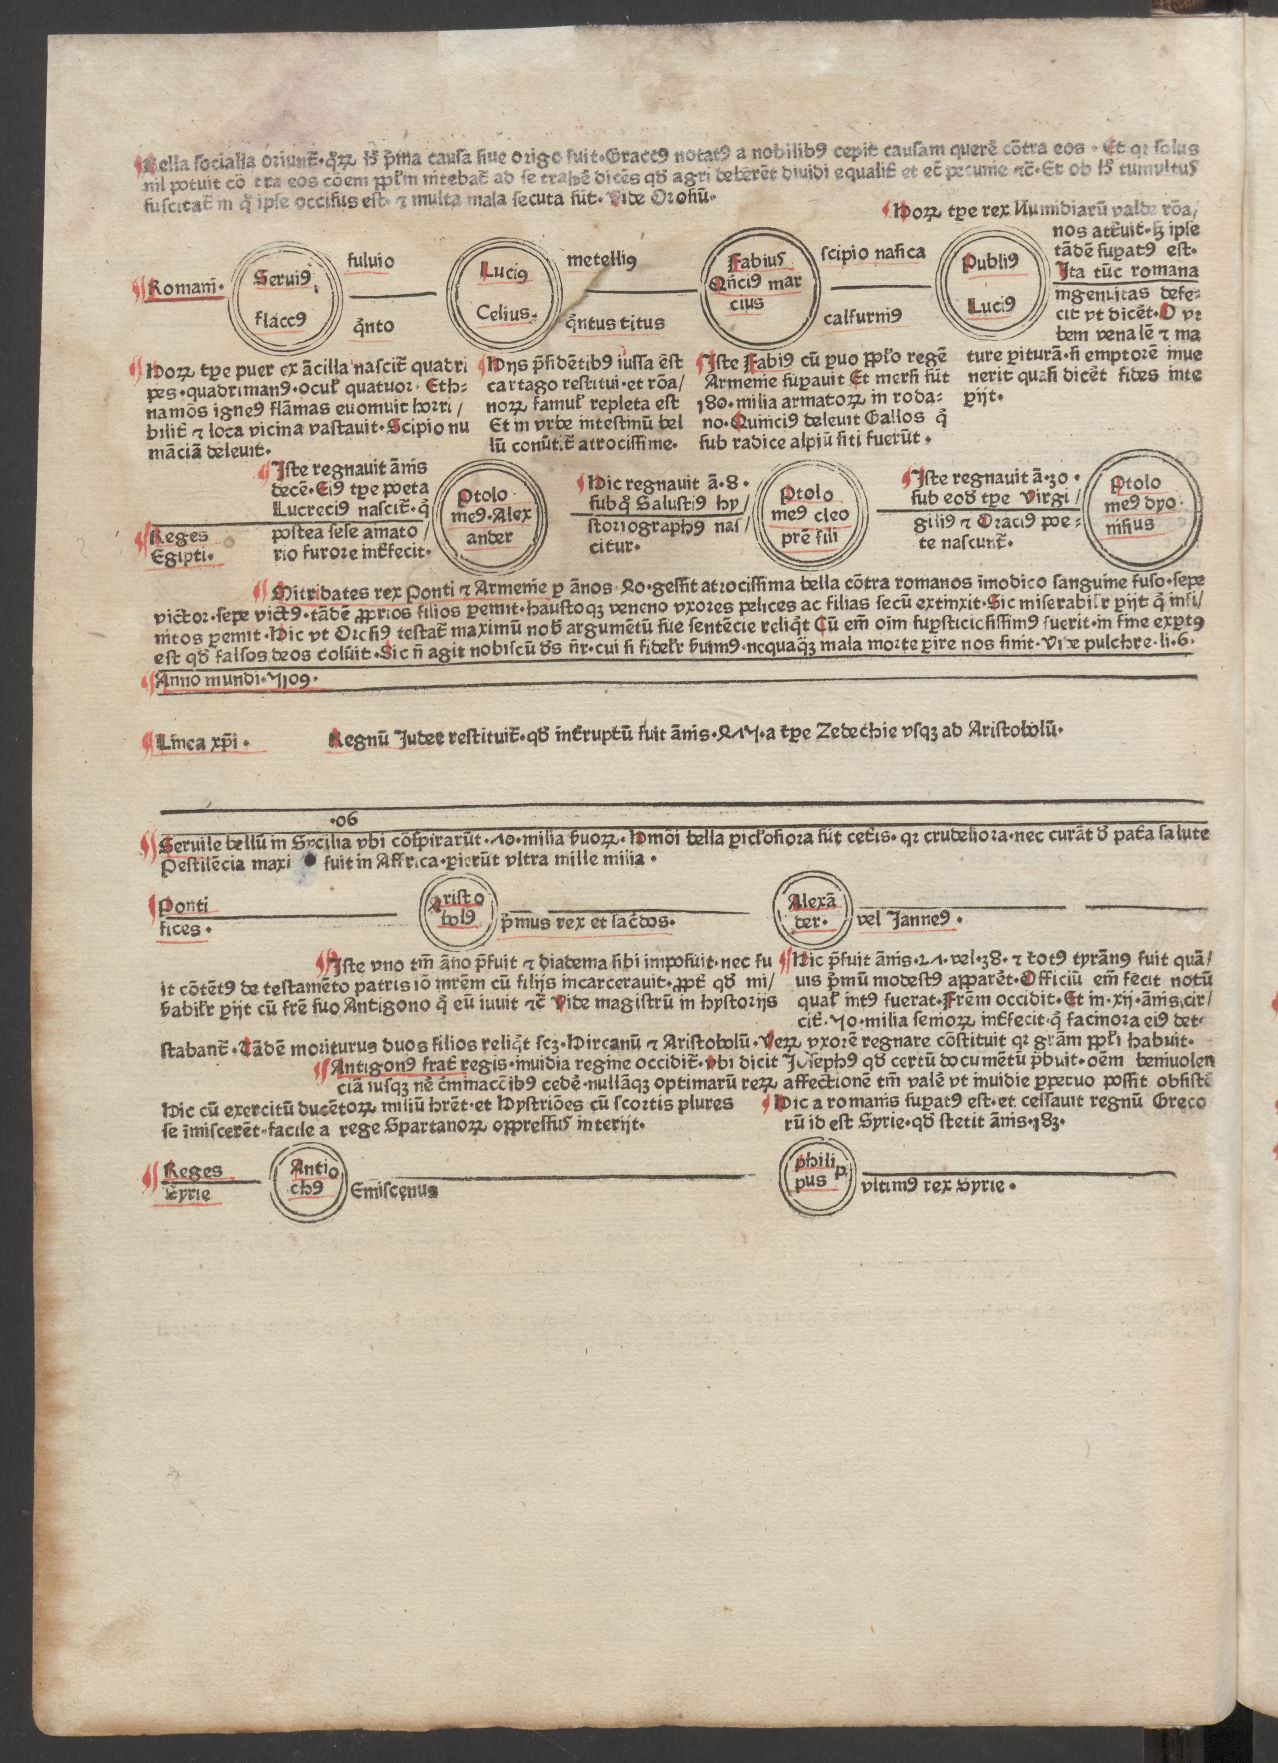 Bella socialia oriunt̃·q̃ꝝ hꝰ p̃ma causa siue origo fuit·Graccꝰ notatꝰ a nobilibꝰ cepit causam querẽ cõtra eos·Et qr solus
nil potuit cõ tra eos cõem ppl'm intebat̃ ad se trahẽ dicẽs qd̃ agri deberẽt diuidi equalit̃ et ec̃ pecunie ⁊c̃·Et ob hꝰ tumultus
suscitat̃ in q̃ ipse occisus est·⁊ multa mala secuta sũt·Vide Orosiũ·
Hoꝝ tꝑe rex Numidiarũ valde rõa/
nos att̃uit·sꝫ ipse
tãdẽ suꝑatꝰ est·
Ita tũc romana
ingenuitas defe-
cit vt dicẽt·O vr
bem venalẽ ⁊ ma
ture ꝑiturã·si emptorẽ inue
nerit quasi dicẽt fides inte
ꝑijt·
Romani·
Seruiꝰ
flaccꝰ
fuluio
q̃nto
Luciꝰ
Celius·
metelliꝰ
q̃ntus titus
Fabius
Qñciꝰ mar
cius
scipio nasica
calfurniꝰ
Publiꝰ
Luciꝰ
Hoꝝ tꝑe puer ex ãcilla nascit̃ quadri
pes·quadrimanꝰ·ocul' quatuor·Eth-
namõs igneꝰ flãmas euomuit horri/
bilit̃ ⁊ loca vicina vastauit·Scipio nu
mãciã deleuit·
Hijs p̃sidẽtibꝰ iussa ẽst
cartago restitui·et rõa/
noꝝ famul' repleta est
Et in vrbe intestinũ bel
lũ conũt̃t̃ atrocissime·
Iste Fabiꝰ cũ ꝑuo ppl'o regẽ
Armenie suꝑauit Et mersi sũt
180·milia armatoꝝ in roda-
no·Quinciꝰ deleuit Gallos q̃
sub radice alpiũ siti fuerũt·
Iste regnauit ãnis
decẽ·Eiꝰ tꝑe poeta
Lucreciꝰ nascit̃·q̃
postea sese amato/
rio furore int̃fecit·
Reges
Egipti·
Ptolo
meꝰ·Alex
ander
Hic regnauit ã·8·
subq̃ Salustiꝰ hy/
storiographꝰ nas/
citur·
Ptolo
meꝰ cleo
prẽ fili
Iste regnauit ã·30·
sub eod̃ tꝑe Virgi/
giliꝰ ⁊ Oraciꝰ poe-
te nascunt̃·
Ptolo
meꝰ dyo
nisius
Mitridates rex Ponti ⁊ Armenie ꝑ ãnos·40·gessit atrocissima bella cõtra romanos ĩmodico sanguine fuso·sepe
victor·sepe victꝰ·tãdẽ ꝓprios filios ꝑemit·haustoqꝫ veneno vxores pelices ac filias secũ extinxit·Sic miserabil'r ꝑijt q̃ infi/
nitos ꝑemit·Hic vt Orosiꝰ testat̃ maximũ nob̃ argumẽtũ sue sentẽcie reliq̃t Cũ em̃ oim suꝑsticiosissimꝰ fuerit·in fine exꝑtꝰ
est qd̃ falsos deos coluit·Sic ñ agit nobiscũ d̃s ñr·cui si fidel'r ẽuimꝰ·nequaq̃ꝫ mala morte ꝑire nos sinit·Vide pulchre·li·6·
Anno mundi·5109·
Linea xp̃i·
Regnũ Judee restituit̃·qd̃ int̃ruptũ fuit ãnis·415·a tꝑe Zedechie vsqꝫ ad Aristobolũ·
·06
Seruile bellũ in Sycilia vbi cõspirarũt·40·milia ẽuoꝝ·Hmõi bella ꝑicl'osiora sũt cet̃is·qr crudeliora·nec curãt d̃ pat̃a salute
Pestilẽcia maxi fuit in Affrica·ꝑierũt vltra mille milia·
Ponti
fices·
Aristo
bolꝰ
p̃mus rex et sac̃dos·
Alexã
der·
vel Janneꝰ·
Iste vno tm̃ ãno p̃fuit ⁊ diadema sibi imposuit·nec fu
it cõtẽtꝰ de testamẽto patris iõ mr̃em cũ filijs incarcerauit·ꝓpt̃ qd̃ mi/
ẽabil'r ꝑijt cũ fr̃e suo Antigono q̃ eũ iuuit ⁊c̃ Vide magistrũ in hystorijs
Hic p̃fuit ãnis·24·vel·38·⁊ totꝰ tyrãnꝰ fuit quã/
uis p̃mũ modestꝰ apparẽt·Officiũ em̃ fecit notũ
qual' intꝰ fuerat·Fr̃em occidit·Et in·xij·ãnis cir/
cit̃·50·milia senioꝝ int̃fecit·q̃ facinora eiꝰ det
stabant̃·Tãdẽ moriturus duos filios reliq̃t scꝫ·Hircanũ ⁊ Aristobolũ·Veꝝ vxorẽ regnare cõstituit qr gr̃am ppl'i habuit·
Antigonꝰ frat̃ regis·inuidia regine occidit̃·vbi dicit Josephꝰ qd̃ certũ documẽtũ p̃buit·oẽm beniuolen
ciã iusqꝫ nẽ c̃minaccibꝰ cedẽ·nullãqꝫ optimarũ reꝝ affectionẽ tm̃ valẽ vt inuidie ꝑpetuo possit obsistẽ
Hic cũ exercitũ ducẽtoꝝ miliũ hr̃et·et Hystriões cũ scortis plures
se ĩmiscerẽt·facile a rege Spartanoꝝ oppressus interijt·
Hic a romanis suꝑatꝰ est·et cessauit regnũ Greco
rũ id est Syrie·qd̃ stetit ãnis·183·
Reges
Syrie
Antio
chꝰ
Emiscenus
Phili
pus
p
vltimꝰ rex Syrie·